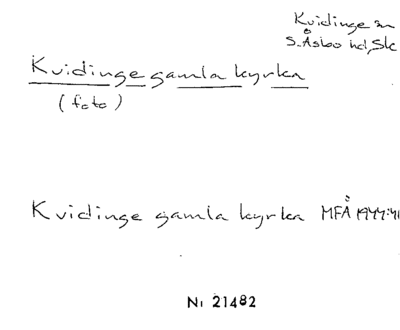 Kvidinge sn
S. Åsbo hd, Sk
Kvidinge gamla kyrka
(foto)
Kvidinge gamla kyrka MFÅ 1977:41
Ni 21482